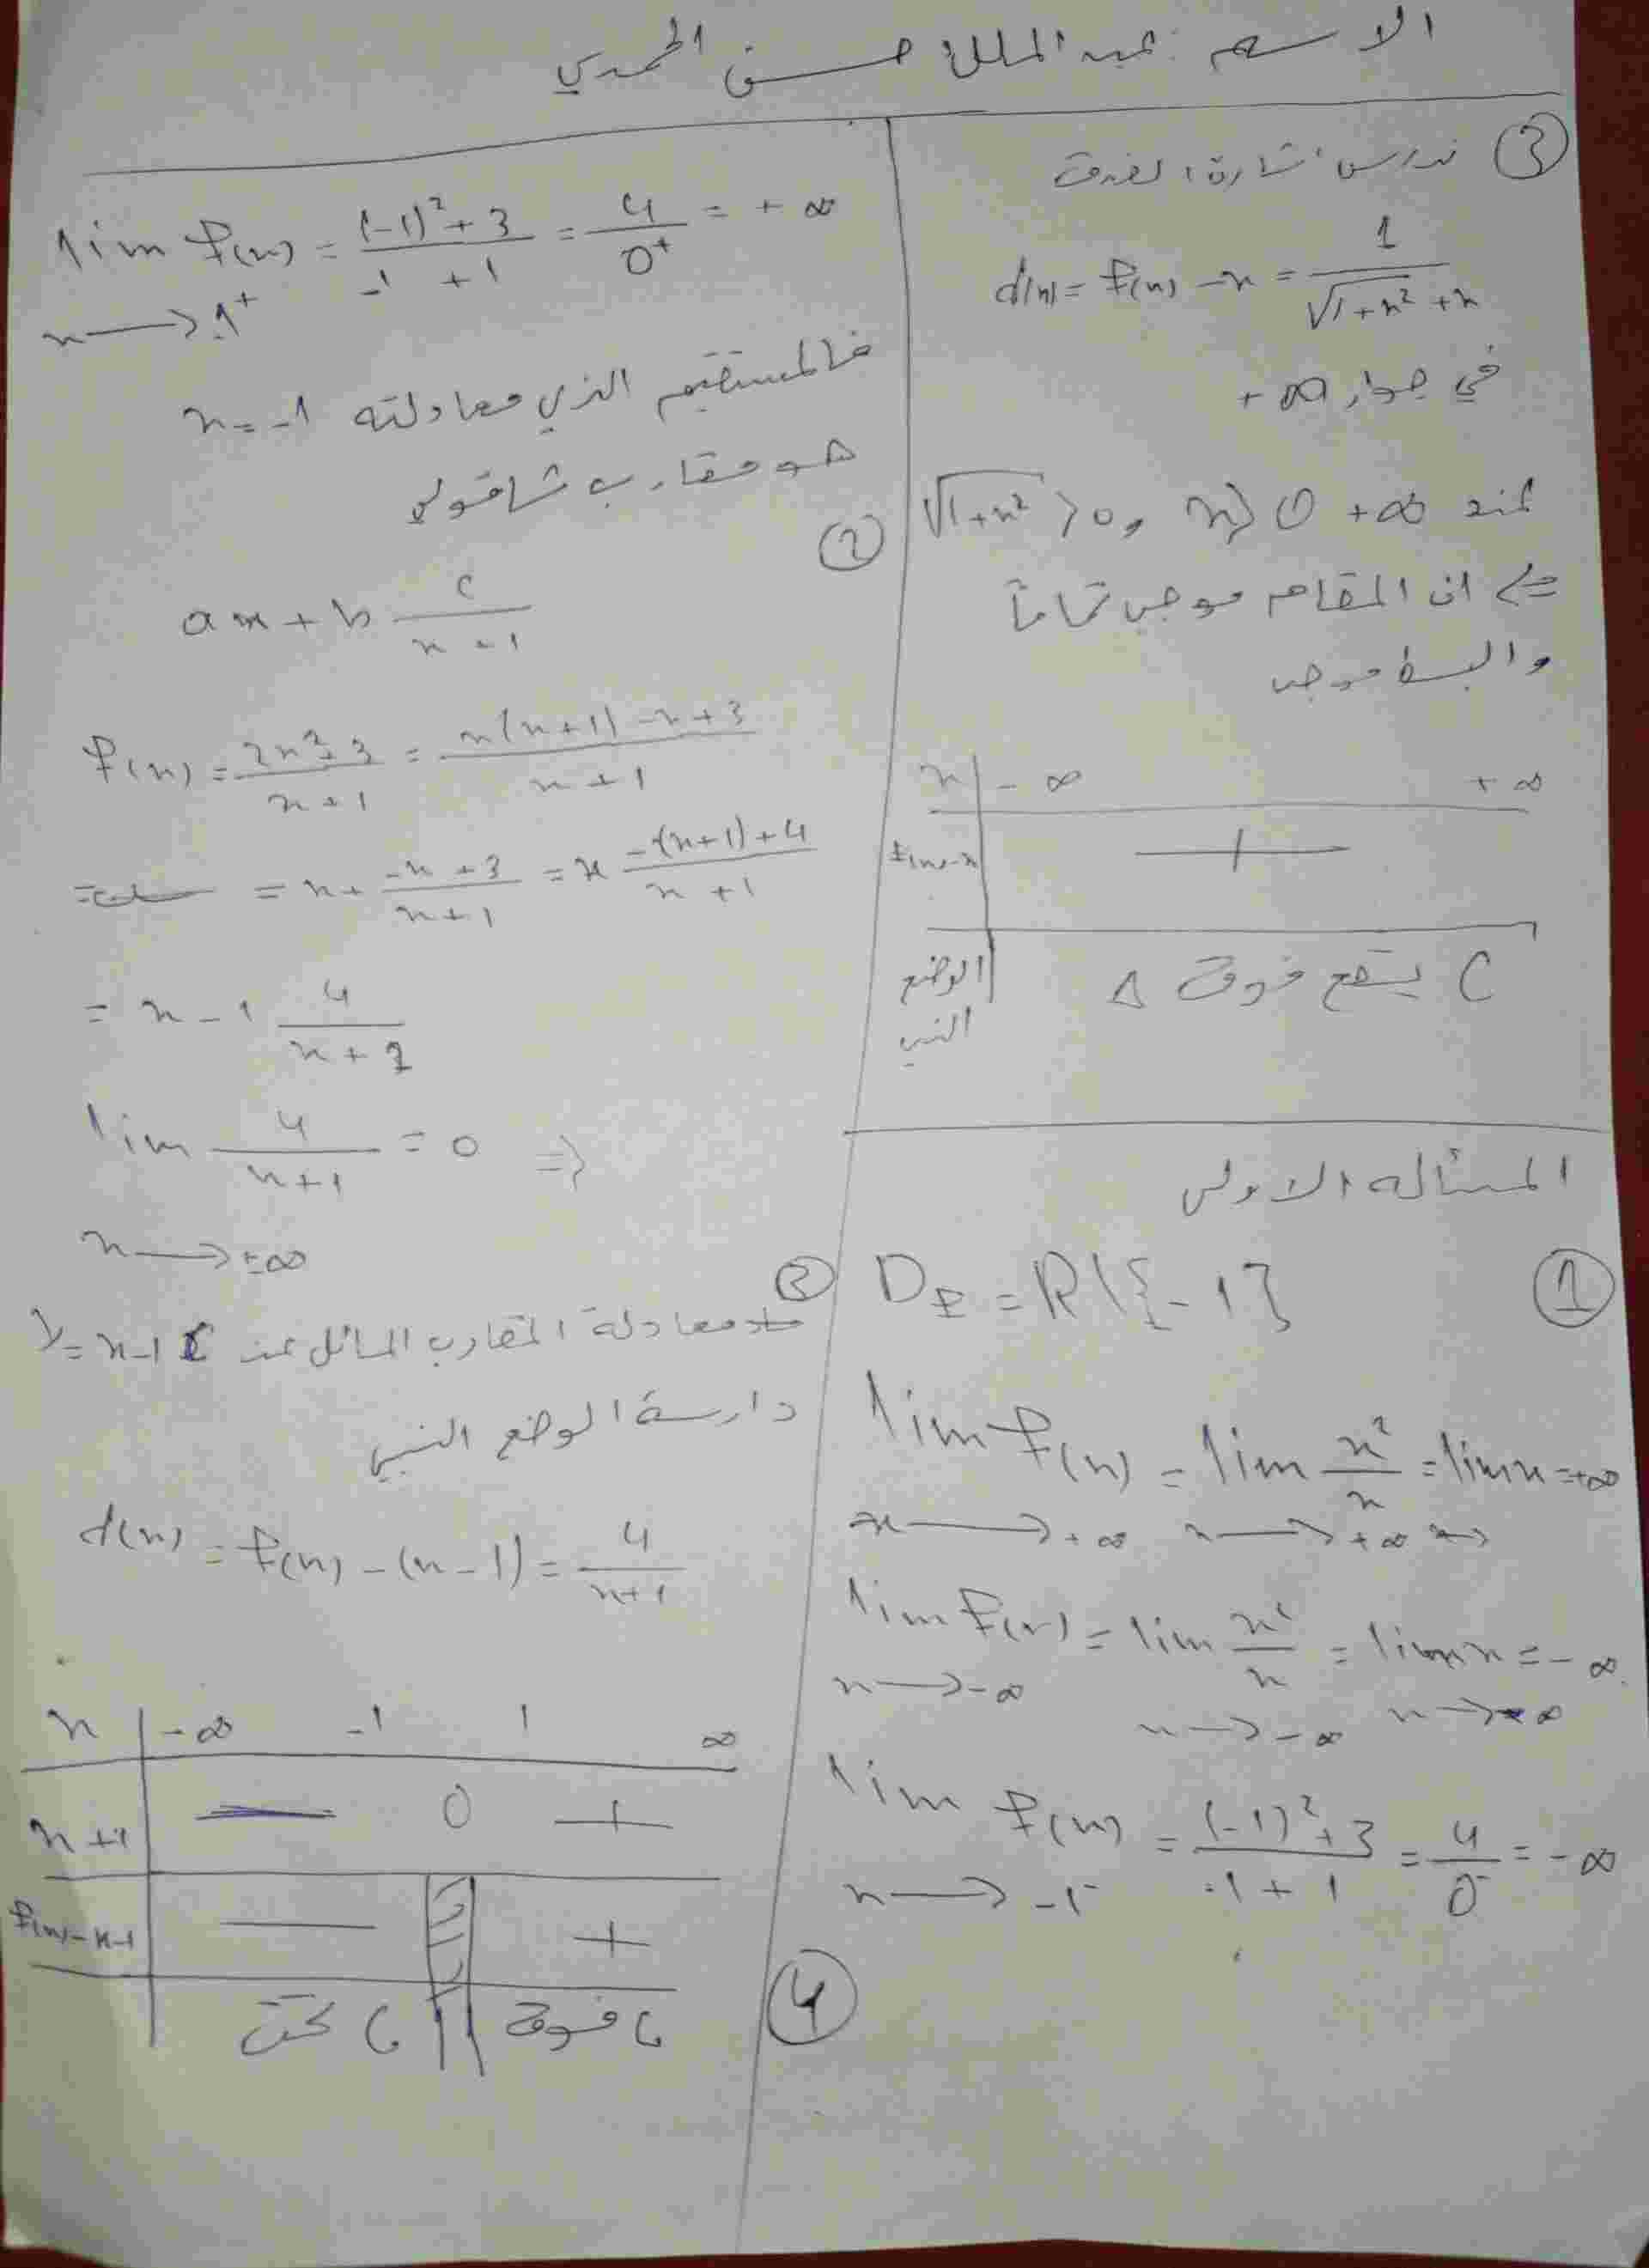 الاسم : عبد الملك حسن المحمدي
③ ندرس اشارة الفرق
d(x) = f(x) - x = 1 / √(1+x²) + x
في جوار +∞
عند +∞ x > 0 و √(1+x²) > 0
⇐ ان المقام موجب تماماً
والبسط موجب
x | -∞ +∞
f(x)-x | +
الوضع النسبي | C يقع فوق Δ
المسألة الاولى
① D_f = R\{-1}
lim f(x) = lim x²/x = lim x = +∞
x → +∞ x → +∞
lim f(x) = lim x²/x = lim x = -∞
x → -∞ x → -∞ x → -∞
lim f(x) = (-1)²+3 / -1+1 = 4/0⁻ = -∞
x → -1⁻
lim f(x) = (-1)²+3 / -1+1 = 4/0⁺ = +∞
x → -1⁺
فالمستقيم الذي معادلته x = -1
هو مقارب شاقولي
②
ax + b c / x+1
f(x) = 2x²+3 / x+1 = x(x+1) -x+3 / x+1
= x + -x+3 / x+1 = x -(x+1)+4 / x+1
= x - 1 4 / x+1
lim 4 / x+1 = 0 ⇒
x → ±∞
③ معادلة المقارب المائل عند y = x-1
دارسة الوضع النسبي
d(x) = f(x) - (x-1) = 4 / x+1
x | -∞ -1 1 ∞
x+1 | - 0 +
f(x)-x-1 | - || +
C تحت || C فوق
④